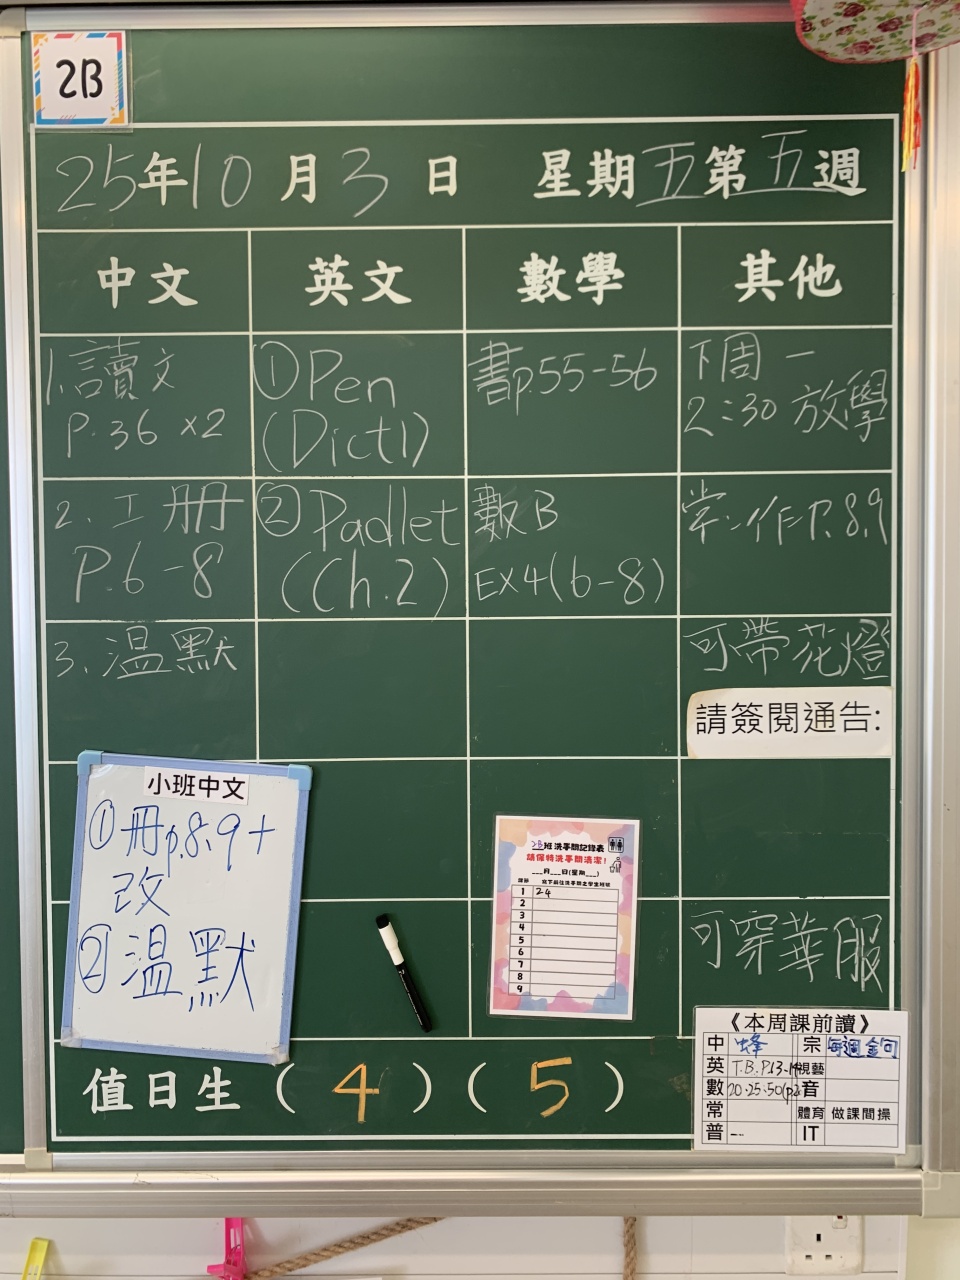 2B
25年10月3日 星期五第五週
中文 英文 數學 其他
1.讀文
P.36 ×2
①Pen
(Dict1)
書p.55-56
下周一
2:30 放學
2. 工册
P.6-8
②Padlet
(Ch.2)
數B
EX4(6-8)
常、作P.8,9
3. 溫默
可帶花燈
請簽閱通告:
小班中文
①冊p.8、9+
改
②溫默
2B班洗手間記錄表
請保持洗手間清潔!
___月___日(星期___)
課節
1 24
2
3
4
5
6
7
8
9
可穿華服
值日生 (4) (5)
《本周課前讀》
中 蜂 宗 每週金句
英 T.B. P.13-14 視藝
數 20.25.50 音
常 體育 做課間操
普 -- IT